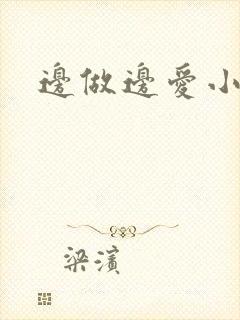 邊做邊愛小
梁濱